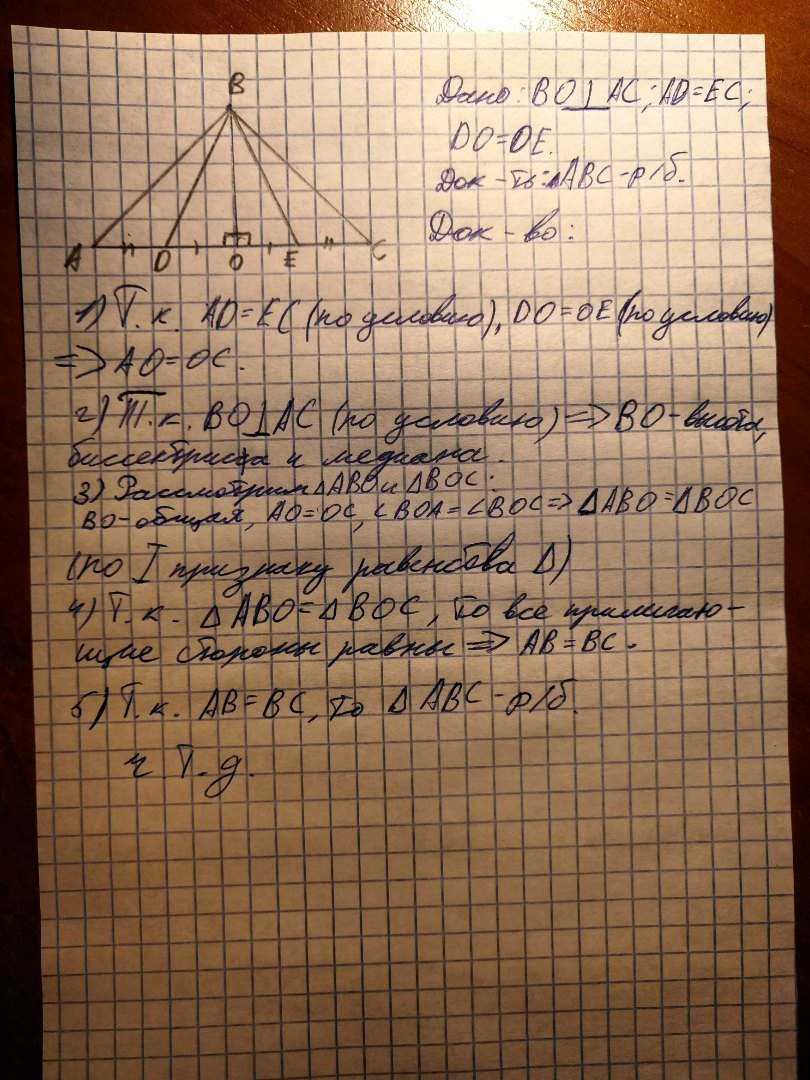 B
A D O E C
Дано: BO⊥AC; AD=EC;
DO=OE.
Док-ть: ΔABC-р/б.
Док-во:
1) Т.к. AD=EC (по условию), DO=OE (по условию)
=> AO=OC.
2) Т.к. BO⊥AC (по условию) => BO-высота,
биссектриса и медиана.
3) Рассмотрим ΔABO и ΔBOC.
BO-общая, AO=OC, ∠BOA=∠BOC=> ΔABO=ΔBOC
(по I признаку равенства Δ)
4) Т.к. ΔABO=ΔBOC, то все прилигаю-
щие стороны равны => AB=BC.
5) Т.к. AB=BC, то ΔABC-р/б.
ч.т.д.